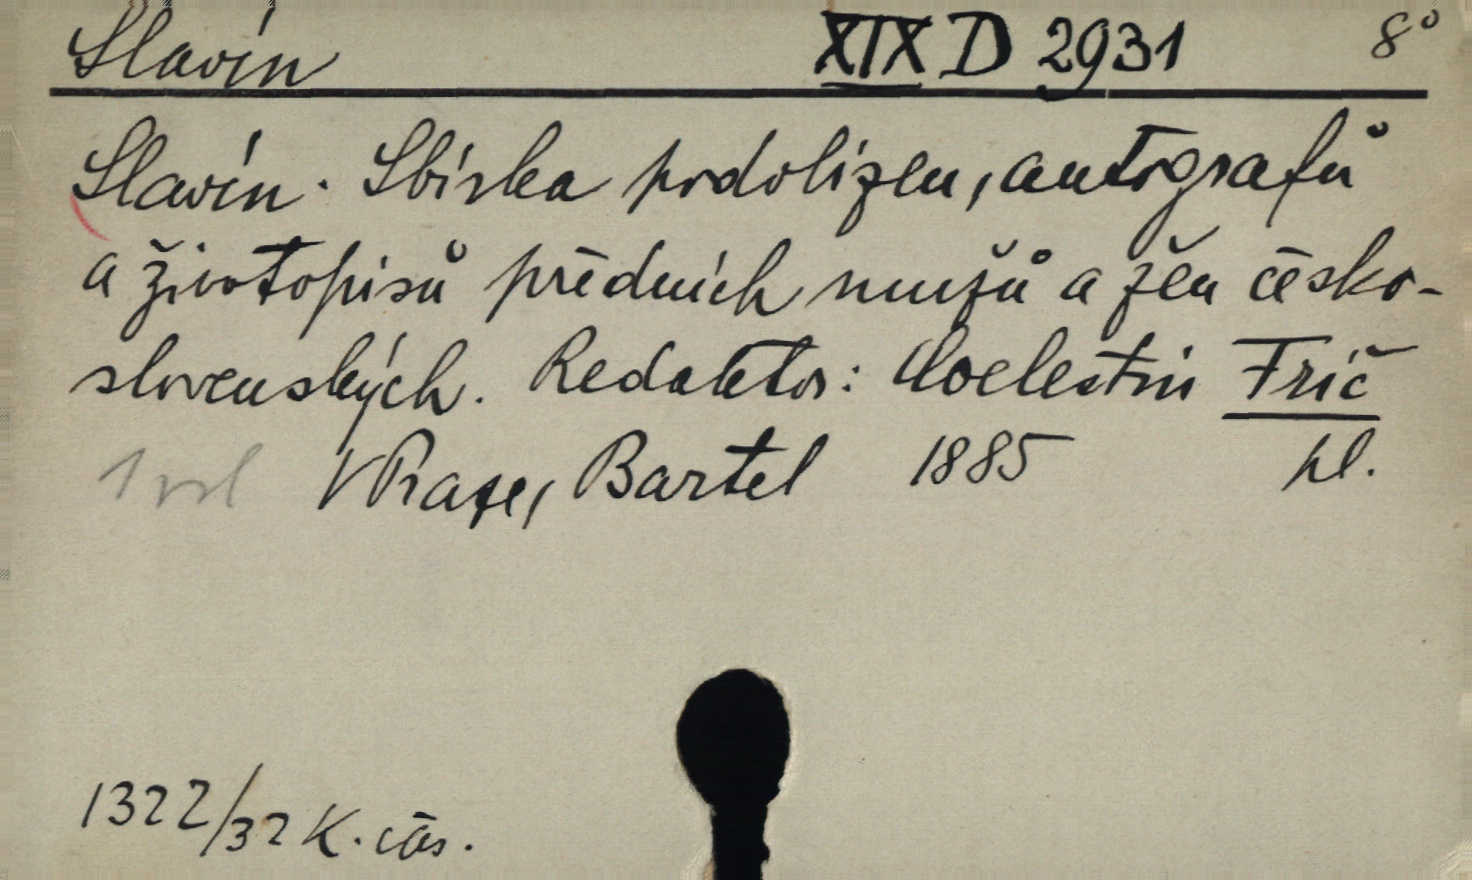 Slavín XIX D 2931 8°
Slavín. Sbírka podolizen, autografů
a životopisů předních mužů a žen česko-
slovenských. Redaktor: Coelestin Frič
V Praze, Bartel 1885 pl.
1322/32 K. čas.